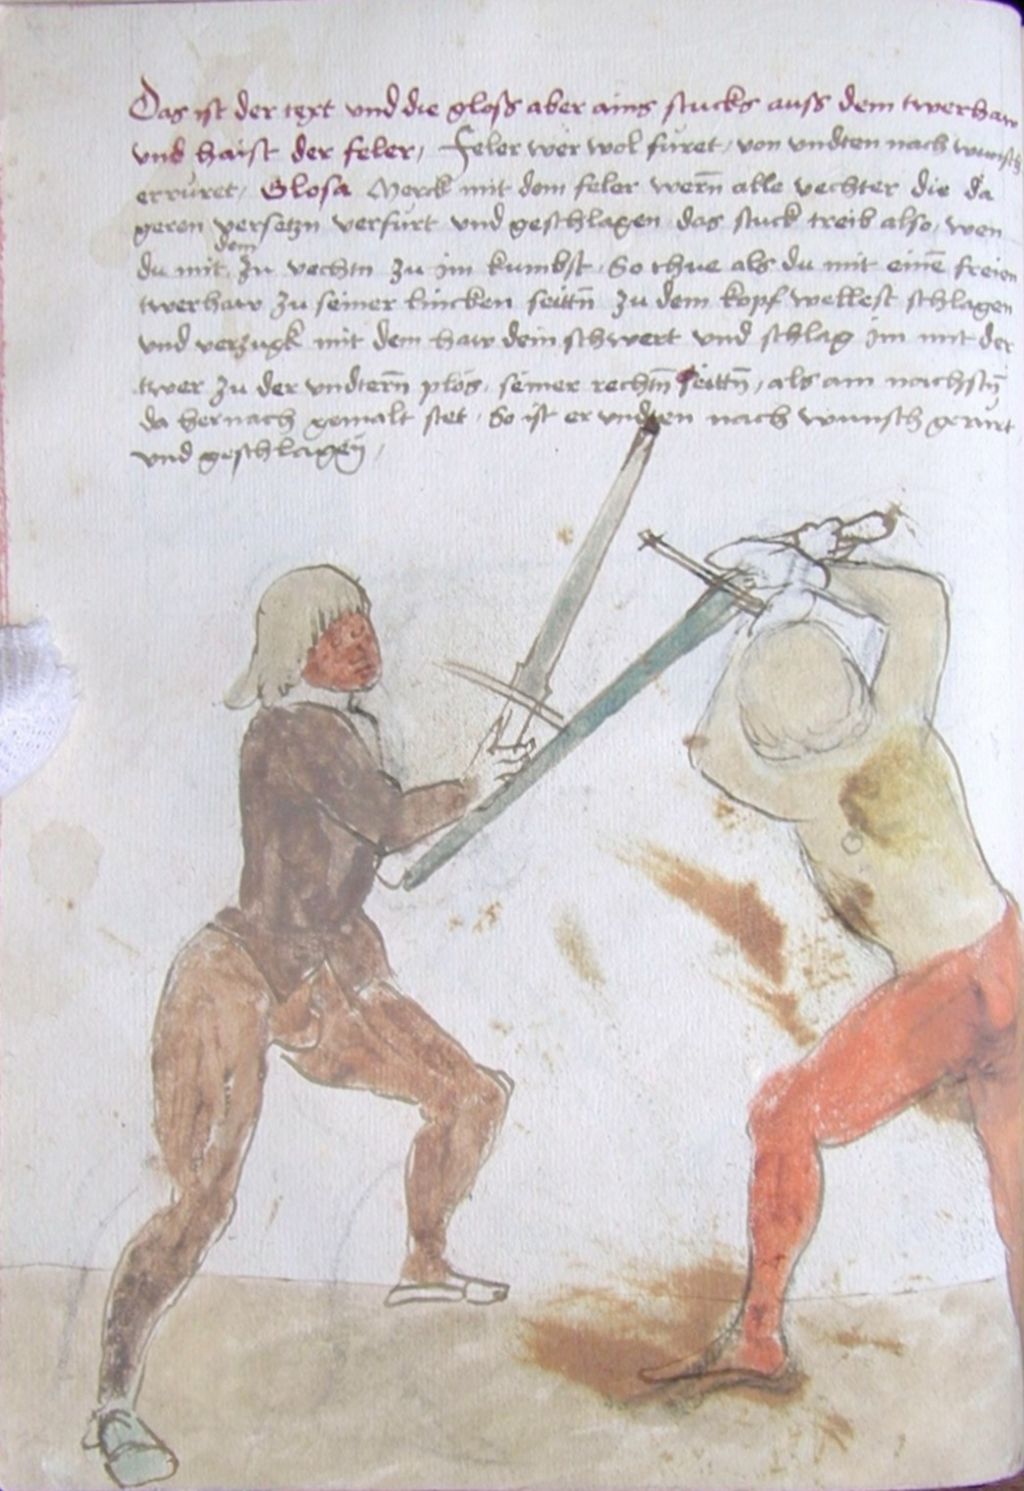 Das ist der text vnd die gloss aber ains stucks auss dem twerhaw
vnd haist der feler, Feler wer wol füret, von vndten nach wunsch
errüret, Glosa Merck mit dem feler wern̄ alle vechter die da
geren versetzn verfürt vnd geschlagen das stuck treib also, wen
dem
du mit zu vechtn zu im kumbst, So thue als du mit einē freien
twerhaw zu seiner lincken seittn̄ zu dem kopf wellest schlagen
vnd verzugk mit dem haw dein schwert vnd schlag im mit der
twer zu der vndtern̄ plös, seiner rechtn̄ seittn̄, als am nachstn̄
da hernach gemalt stet, So ist er vndten nach wunsch gerurt
vnd geschlagen̄,